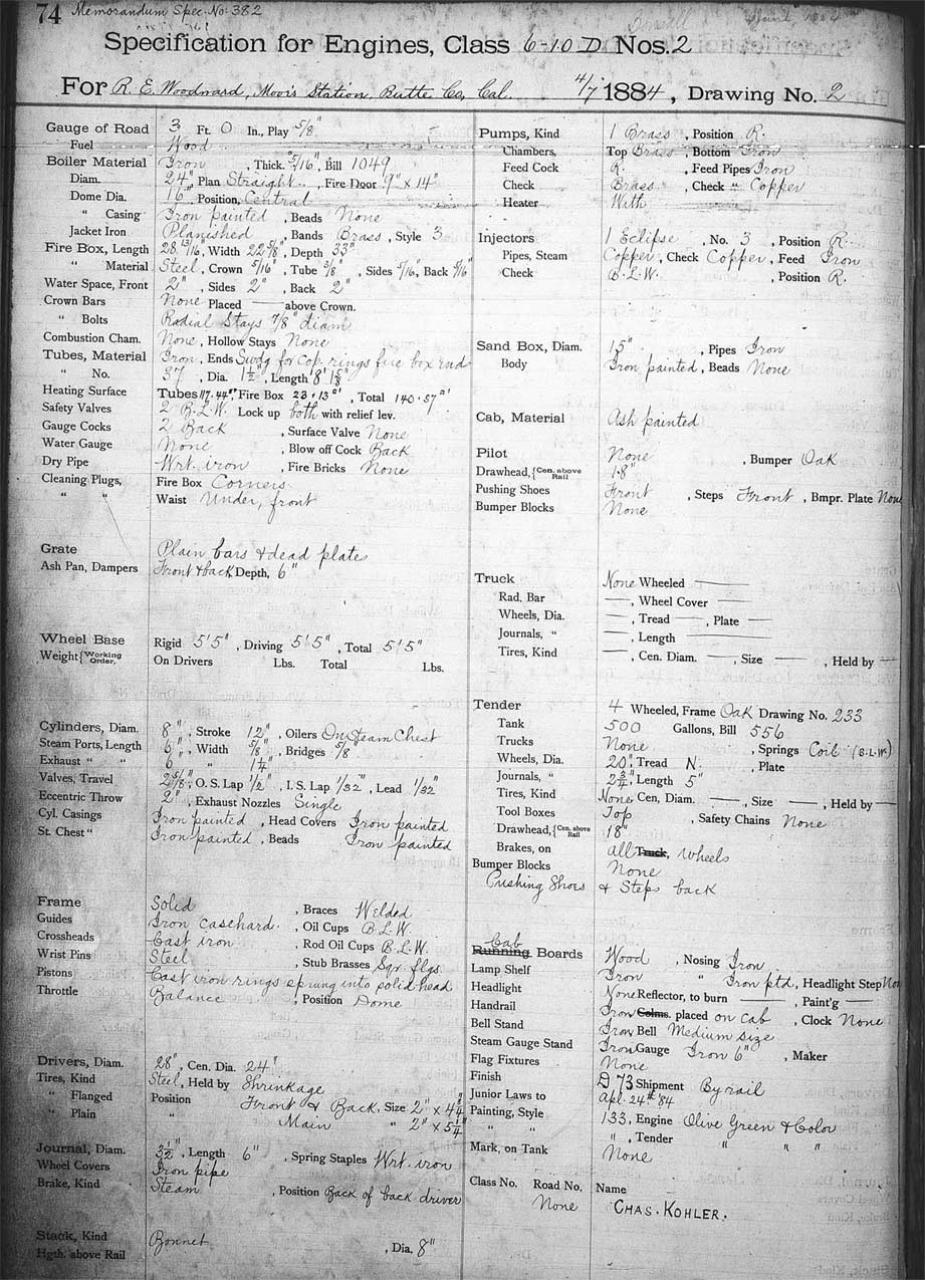 74 Memorandum Spec. No. 382
Specification for Engines, Class 6-10 D Nos. 2
For R. E. Woodward, Moor's Station, Butte Co, Cal. 4/7 1884, Drawing No. 2
Gauge of Road 3 Ft. 0 In., Play 5/8"
Fuel Wood
Boiler Material Iron, Thick. 5/16", Bill 1049
Diam. 24" Plan Straight, Fire Door 9" x 14"
Dome Dia. 16", Position, Central
" Casing Iron painted, Beads None
Jacket Iron Planished, Bands Brass, Style 3
Fire Box, Length 28 13/16", Width 22 5/8", Depth 33"
" Material Steel, Crown 5/16", Tube 3/8", Sides 5/16", Back 5/16"
Water Space, Front 2", Sides 2", Back 2"
Crown Bars None Placed — above Crown.
" Bolts Radial Stays 7/8" diam
Combustion Cham. None, Hollow Stays None
Tubes, Material Iron, Ends Swdg for cop rings fire box end
" No. 37, Dia. 1 1/2", Length 8'
Heating Surface Tubes 117.44", Fire Box 23.13", Total 140.57"
Safety Valves 2 B.L.W. Lock up both with relief lev.
Gauge Cocks 2 Back, Surface Valve None
Water Gauge None, Blow off Cock Back
Dry Pipe Wrt. iron, Fire Bricks None
Cleaning Plugs, Fire Box Corners
" " Waist Under, front
Grate Plain bars & dead plate
Ash Pan, Dampers Front & back, Depth, 6"
Wheel Base Rigid 5'5", Driving 5'5", Total 5'5"
Weight {Working Order, On Drivers Lbs. Total Lbs.
Cylinders, Diam. 8", Stroke 12", Oilers On Steam Chest
Steam Ports, Length 6", Width 5/8", Bridges 5/8
Exhaust " " 6" " 1 1/4"
Valves, Travel 2 5/8", O. S. Lap 1/2", I. S. Lap 1/32", Lead 1/32"
Eccentric Throw 2", Exhaust Nozzles Single
Cyl. Casings Iron painted, Head Covers Iron painted
St. Chest " Iron painted, Beads Iron painted
Frame Solid, Braces Welded
Guides Iron casehard., Oil Cups B.L.W.
Crossheads Cast iron, Rod Oil Cups B.L.W.
Wrist Pins Steel, Stub Brasses Sqr flgs
Pistons Cast iron rings sprung into solid head
Throttle Balance, Position Dome
Drivers, Diam. 28", Cen. Dia. 24"
Tires, Kind Steel, Held by Shrinkage
" Flanged Position Front & Back, Size 2" x 4 3/4"
" Plain " Main " 2" x 5 1/4"
Journal, Diam. 3 1/2", Length 6", Spring Staples Wrt. iron
Wheel Covers Iron pipe
Brake, Kind Steam, Position Back of back driver
Stack, Kind Bonnet, Dia. 8"
Hgth. above Rail
Pumps, Kind 1 Brass, Position R.
Chambers, Top Brass, Bottom Iron
Feed Cock R., Feed Pipes Iron
Check Brass, Check " Copper
Heater With
Injectors 1 Eclipse, No. 3, Position R.
Pipes, Steam Copper, Check Copper, Feed Iron
Check B.L.W., Position R.
Sand Box, Diam. 15", Pipes Iron
Body Iron painted, Beads None
Cab, Material Ash painted
Pilot None, Bumper Oak
Drawhead, {Cen. above Rail 18"
Pushing Shoes Front, Steps Front, Bmpr. Plate None
Bumper Blocks None
Truck None Wheeled —
Rad. Bar —, Wheel Cover —
Wheels, Dia. —, Tread —, Plate —
Journals, " —, Length —
Tires, Kind —, Cen. Diam. —, Size —, Held by —
Tender 4 Wheeled, Frame Oak Drawing No. 233
Tank 500 Gallons, Bill 556
Trucks None, Springs Coil (B.L.W.)
Wheels, Dia. 20", Tread N., Plate
Journals, " 2 3/4", Length 5"
Tires, Kind None, Cen, Diam. —, Size —, Held by —
Tool Boxes Top, Safety Chains None
Drawhead, {Cen. above Rail 18"
Brakes, on all Truck, Wheels
Bumper Blocks None
Pushing Shoes & Steps back
Cab
Running Boards Wood, Nosing Iron
Lamp Shelf Iron " Iron ptd, Headlight Step None
Headlight None Reflector, to burn —, Paint'g —
Handrail Iron Colms. placed on cab, Clock None
Bell Stand Iron Bell Medium size
Steam Gauge Stand Iron Gauge Iron 6", Maker
Flag Fixtures None
Finish D 73 Shipment By rail
Junior Laws to Apl. 24th '84
Painting, Style 133, Engine Olive Green & Color
" " ", Tender " " "
Mark, on Tank None
Class No. Road No. Name
None CHAS. KOHLER.